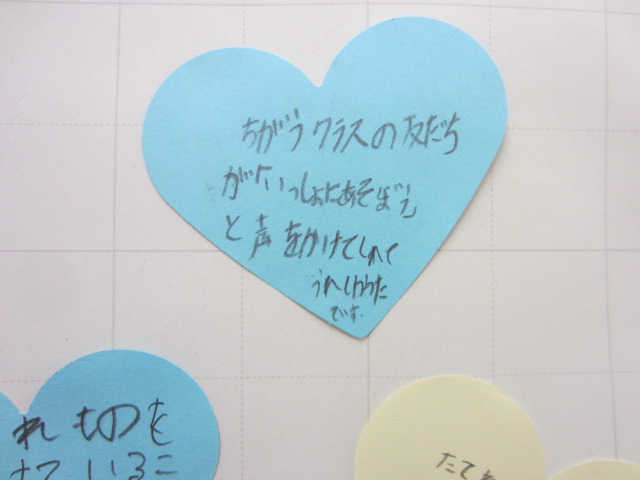 ちがうクラスの友だち
が「いっしょにあそぼう」
と声をかけてくれて
うれしかった
です。
れものを
ているこ
たてわ